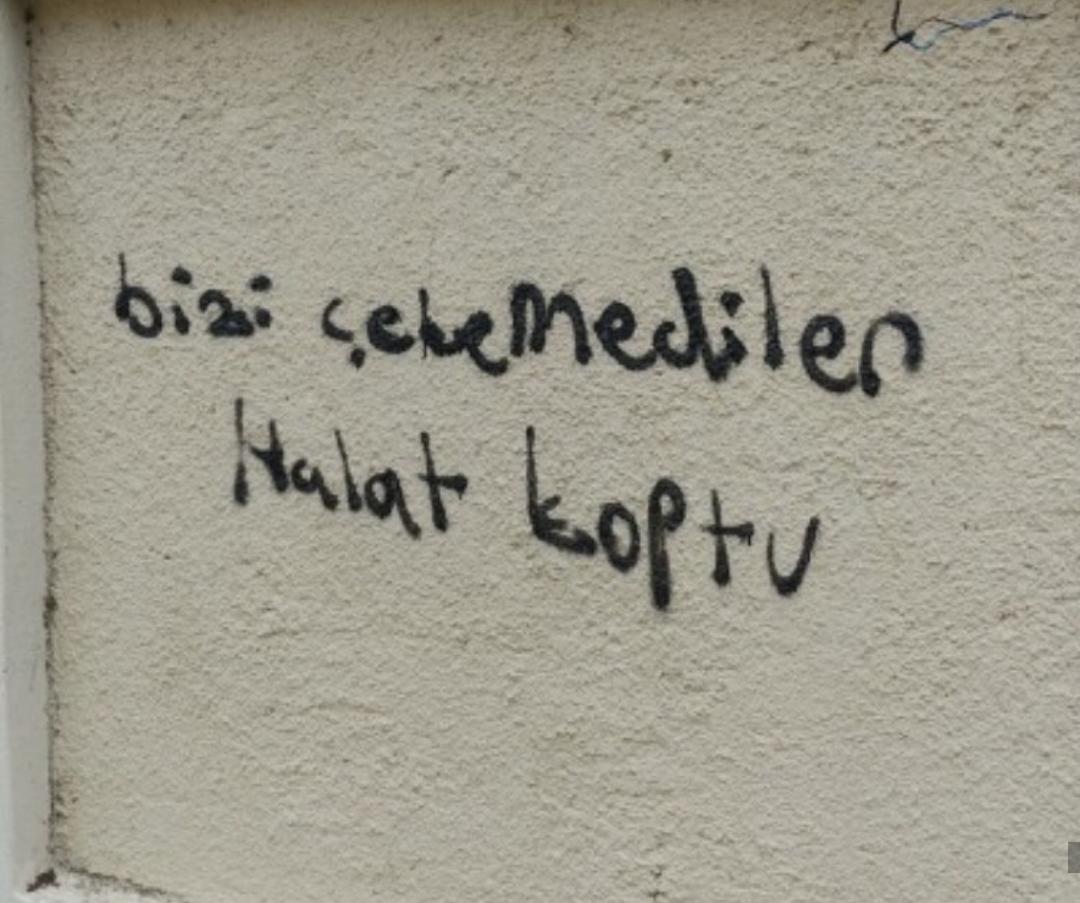 bizi çekemediler
Halat koptu